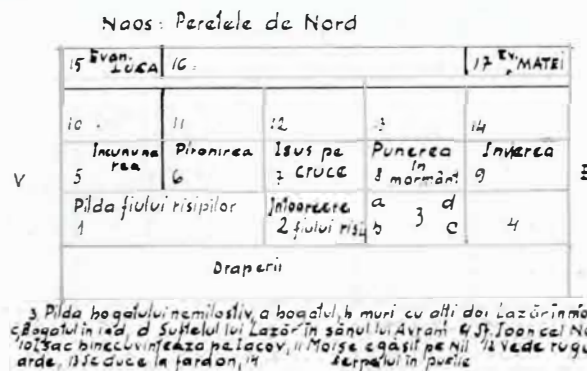 Naos: Peretele de Nord
15 Evan. LUCA 16. 17 Ev. MATEI
10 . 11 12 13 14
Incununarea Pironirea Isus pe cruce Punerea in mormânt Invierea
V 5 6 7 8 9 E
Pilda fiului risipilor Intoarcere fiului risi a d b c
1 2 3 4
Draperii
3 Pilda bogatului nemilostiv, a bogatul, b muri cu alti doi Lazăr în
c Bogatul in iad, d Sufletul lui Lazăr în sânul lui Avram 4 Sf Ioan cel
10 Isac binecuvinteaza pe Iacov, 11 Moise e găsit pe Nil 12 Vede rugu
arde, 13 Se duce la fardon, 14 serpelui in pustie